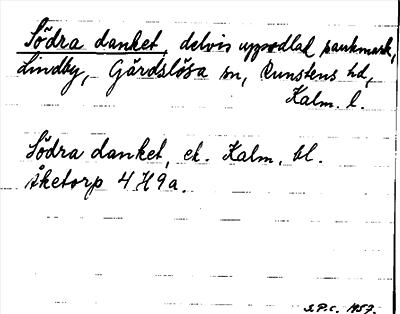 Södra danket, delvis uppodlad sankmark,
Lindby, Gårdslösa sn, Runstens hd,
Kalm. l.
Södra danket, ek. Kalm. bl.
Åketorp 4 H 9 a.
S.P.C. 1957.